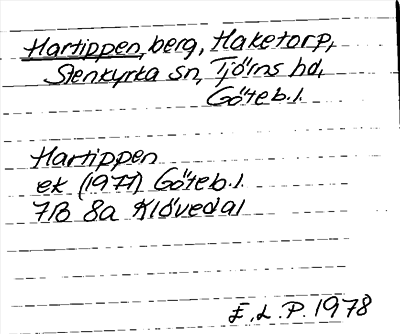 Hartippen, berg, Haketorp,
Stenkyrka sn, Tjörns hd,
Göteb.l.
Hartippen
ek (1977) Göteb.l.
7B 8a Klövedal
E.L.P. 1978